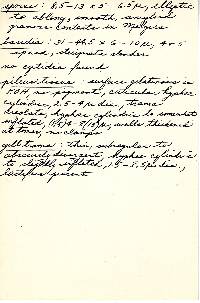 spores: 8.5-13 x 5-6.5µ, elliptic
to oblong, smooth, amyloid
granular contents in Melzers
basidia: 31-44.5 x 6-10µ, 4-5
spored, elongate clavate
no cystidia found
pileus trama - surface gelatinous in
KOH, no pigment, cuticular hyphae
cylindric, 2.5-4µ dia., trama
hyphae cylindric to somewhat
inflated, walls thickened
at times, no clamps
gill trama: thin, subregular to
obscurely divergent, hyphae cylindric
to slightly inflated, dia.,
present